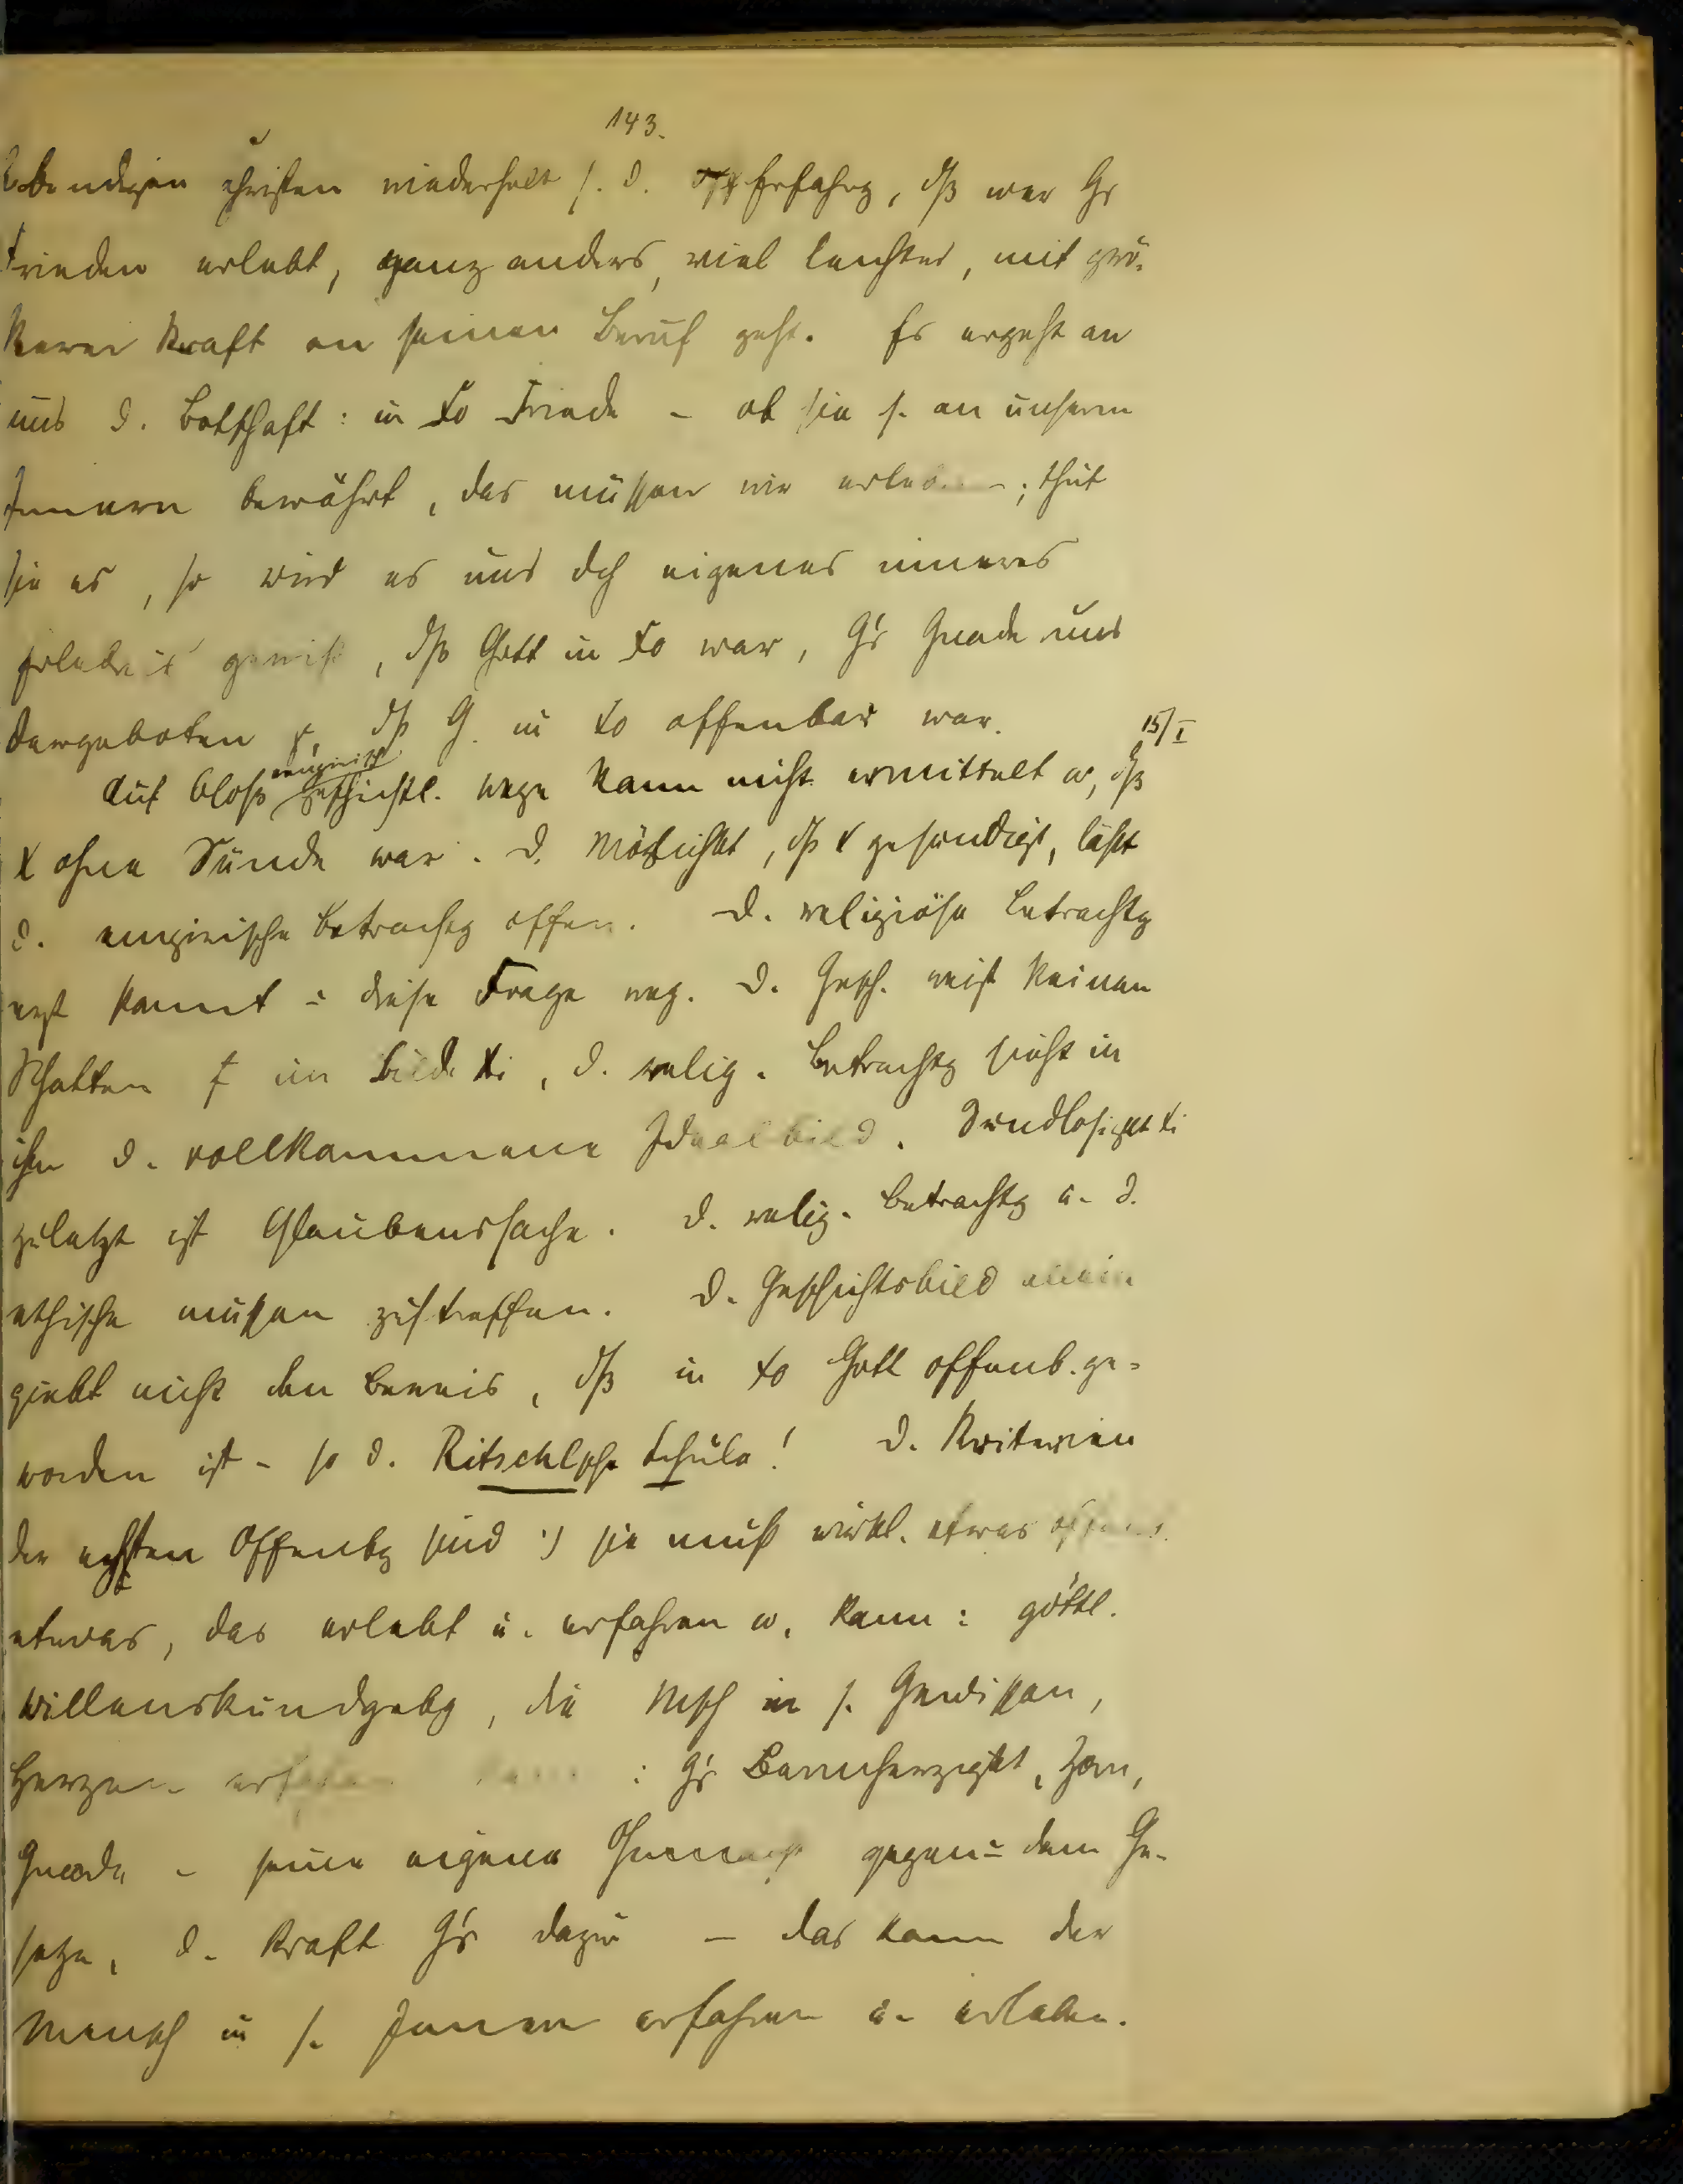 143.
lebendigen Christen wiederholt s. d. Erfahrg, dß wer Gs
Frieden erlebt, ganz anders, viel leichter, mit grö-
ßerer Kraft an seinen Beruf geht. Es ergeht an
uns d. Botschaft: in Xo Friede – ob sie s. an unserm
Innern bewährt, das müssen wir erleben; thut
sie es, so wird es uns dch eigenes inneres
Erlebnis gewiß, dß Gott in Xo war, G's Gnade uns
dargeboten, dß G. in Xo offenbar war. 15/I
empirisch
Auf bloß geschichtl. Wege kann nicht ermittelt w, dß
X ohne Sünde war. D. Möglichkt, dß X gesündigt, läßt
d. empirische Betrachtg offen. D. religiöse Betrachtg
erst kommt ü diese Frage weg. D. Gesch. weist keinen
Schatten im Bilde Xi, d. relig. Betrachtg sieht in
ihm d. vollkommene Idealbild. Sündlosigkt Xi
zuletzt ist Glaubenssache. D. relig. Betrachtg u. d.
ethische müssen zustreffen. D. Geschichtsbild allein
giebt nicht den Beweis, dß in Xo Gott offenb. ge-
worden ist – so d. Ritschlsche Schule! D. Kriterien
der echten Offenbg sind :) sie muß wirkl. etwas offenb.
etwas, das erlebt u. erfahren w. kann: göttl.
Willenskundgebg, die Msch in s. Gewissen,
Herzen erfahren kann: G's Barmherzigkt, Zorn,
Gnade – seine eigene Ohnmacht gegenü dem Ge-
setze, d. Kraft G's dazu – das kann der
Mensch in s. Innern erfahren u. erleben.